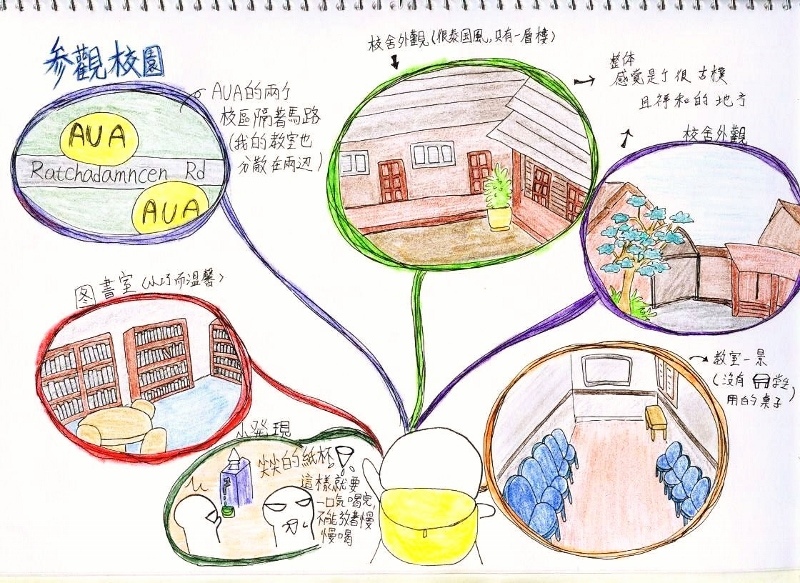 參觀校園
AUA
Ratchadamncen Rd
AUA
AUA的兩个
校區隔著馬路
(我的教室也
分散在兩边)
校舍外觀(很泰国風,只有一層樓)
整体
感覺是个很古樸
且祥和的地方
校舍外觀
图書室(小巧而溫馨)
教室一景
(沒有
用的桌子)
小發現
尖尖的紙杯
這樣就要
一口気喝完,
不能放著慢
慢喝